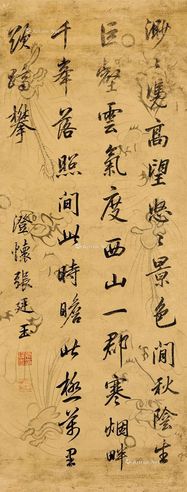 渺〻凴高望悠〻景色閒秋陰生
巨壑雲氣度西山一郡寒烟畔
千峯落照間此時瞻此極萬里
躋攀
澄懷張廷玉